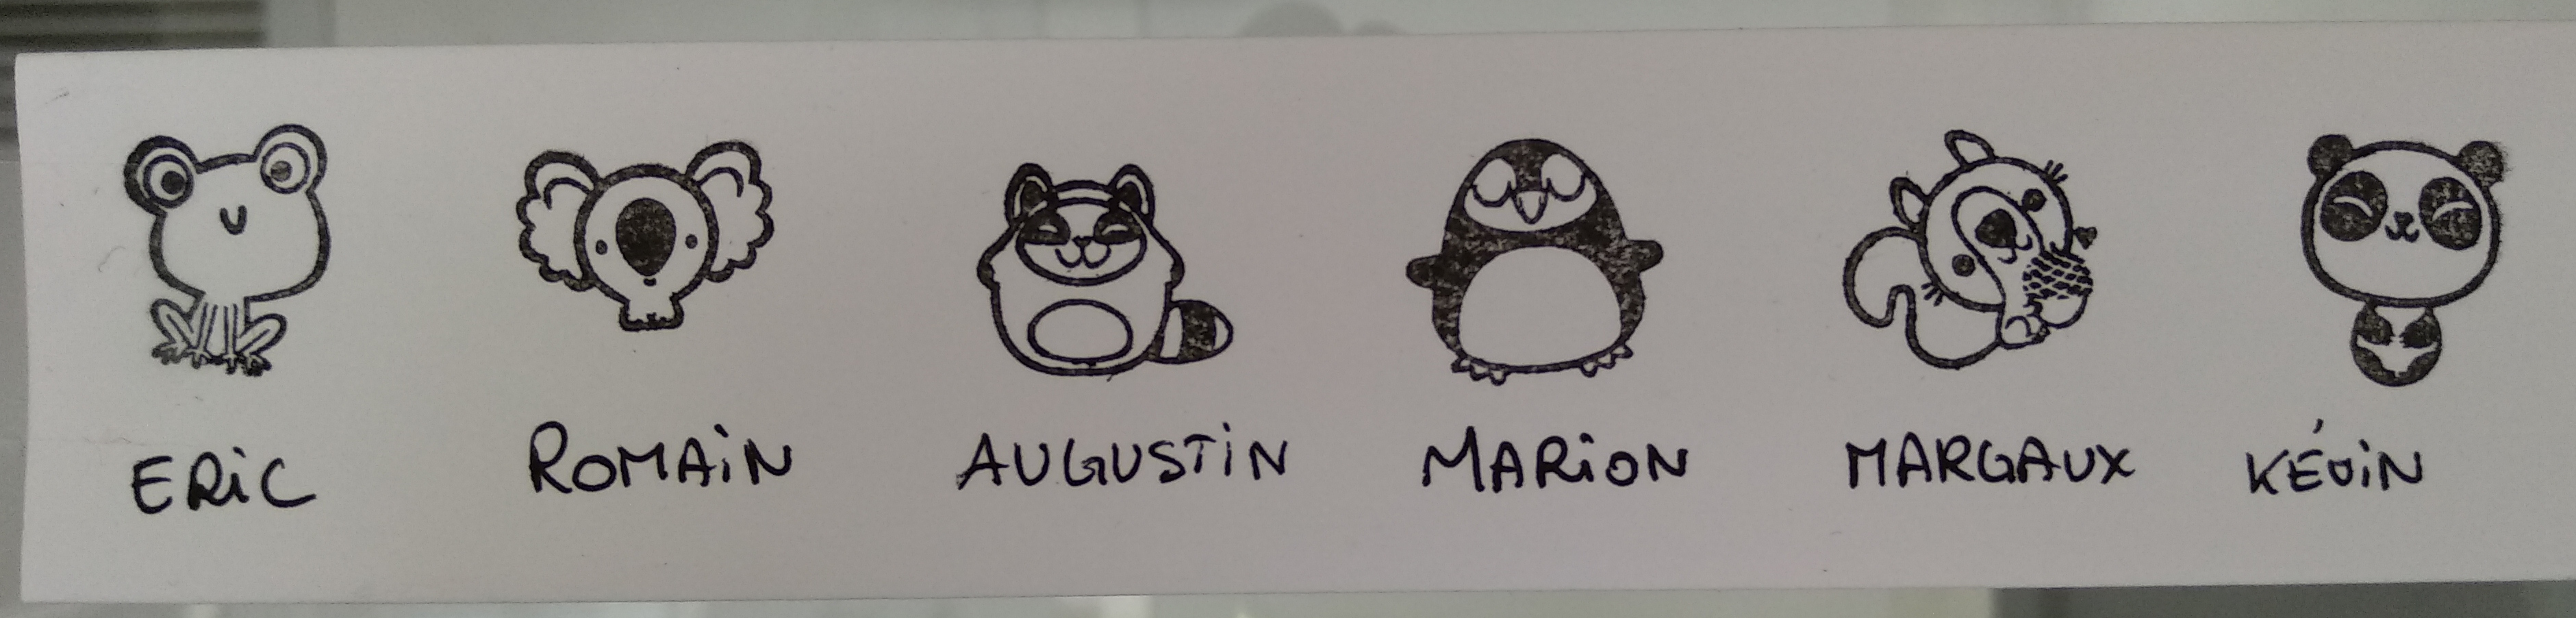 ERiC ROMAiN AUGUSTiN MARiON MARGAUX KÉViN